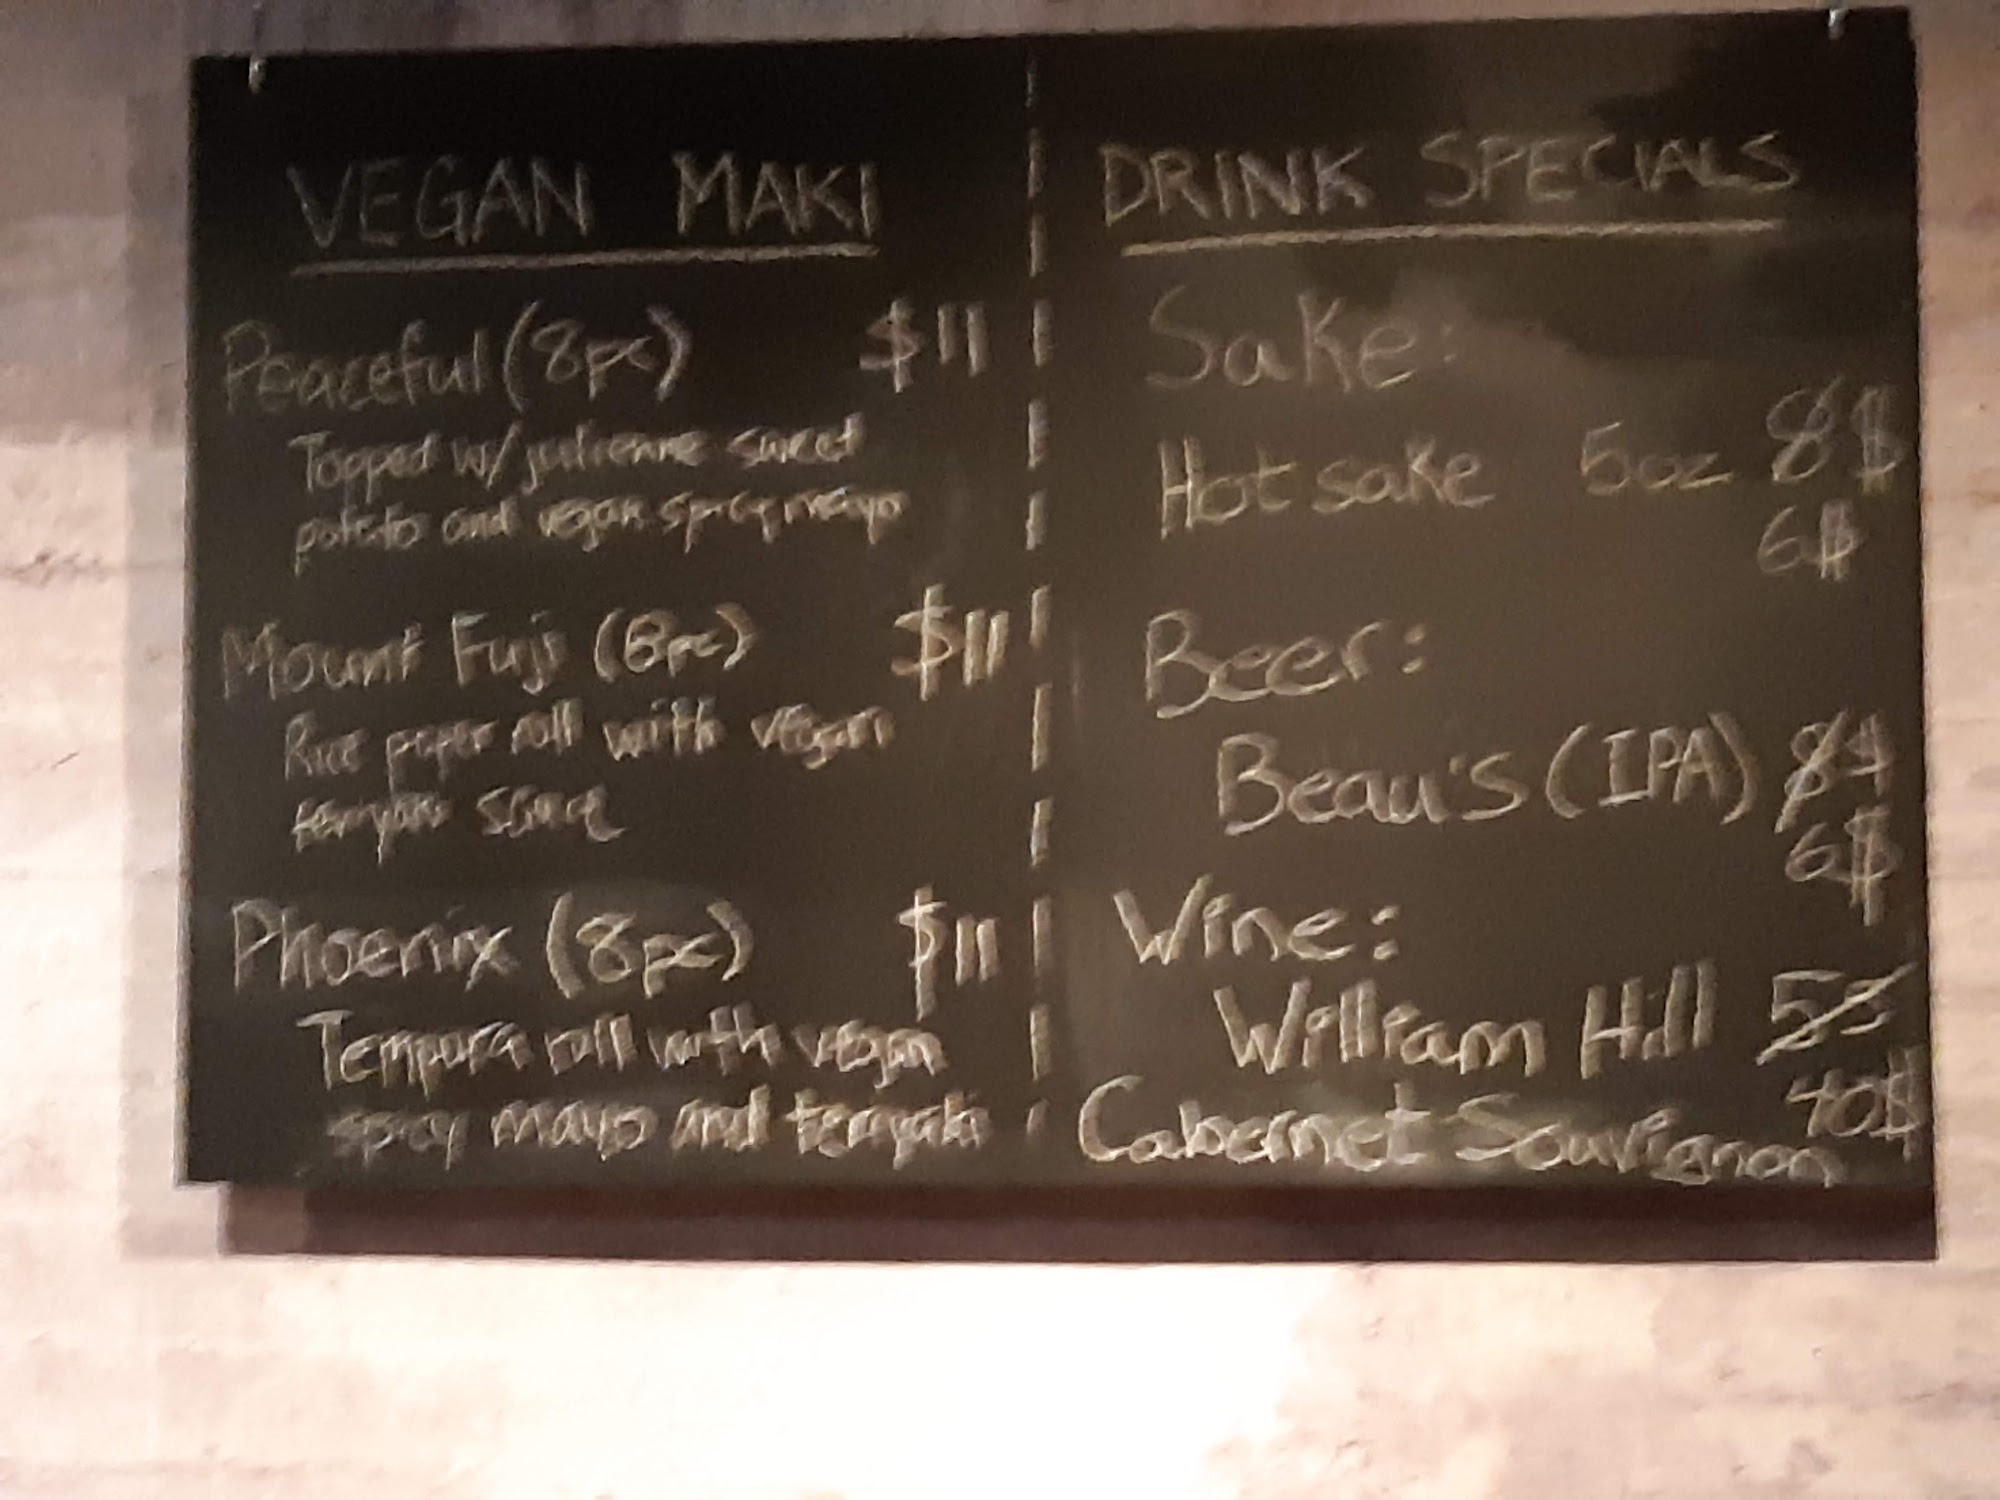 VEGAN MAKI
Peaceful (8pc) $11
Topped w/ julienne sweet
potato and vegan spicy mayo
Mount Fuji (8pc) $11
Rice paper roll with vegan
teriyaki sauce
Phoenix (8pc) $11
Tempura roll with vegan
spicy mayo and teriyaki
DRINK SPECIALS
Sake:
Hot sake 5oz 8$
6$
Beer:
Beau's (IPA) 8$
6$
Wine:
William Hill 55
40$
Cabernet Souvignon